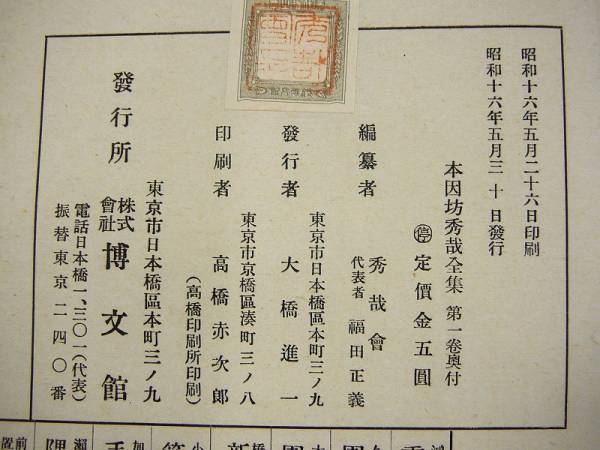 昭和十六年五月二十六日印刷
昭和十六年五月三十日發行
本因坊秀哉全集 第一卷奧付
停 定價金五圓
編纂者 秀哉會
代表者 福田正義
東京市日本橋區本町三ノ九
發行者 大橋進一
東京市京橋區湊町三ノ八
印刷者 高橋赤次郎
(高橋印刷所印刷)
東京市日本橋區本町三ノ九
發行所 株式會社 博文館
電話日本橋一、三〇一(代表)
振替東京二四〇番